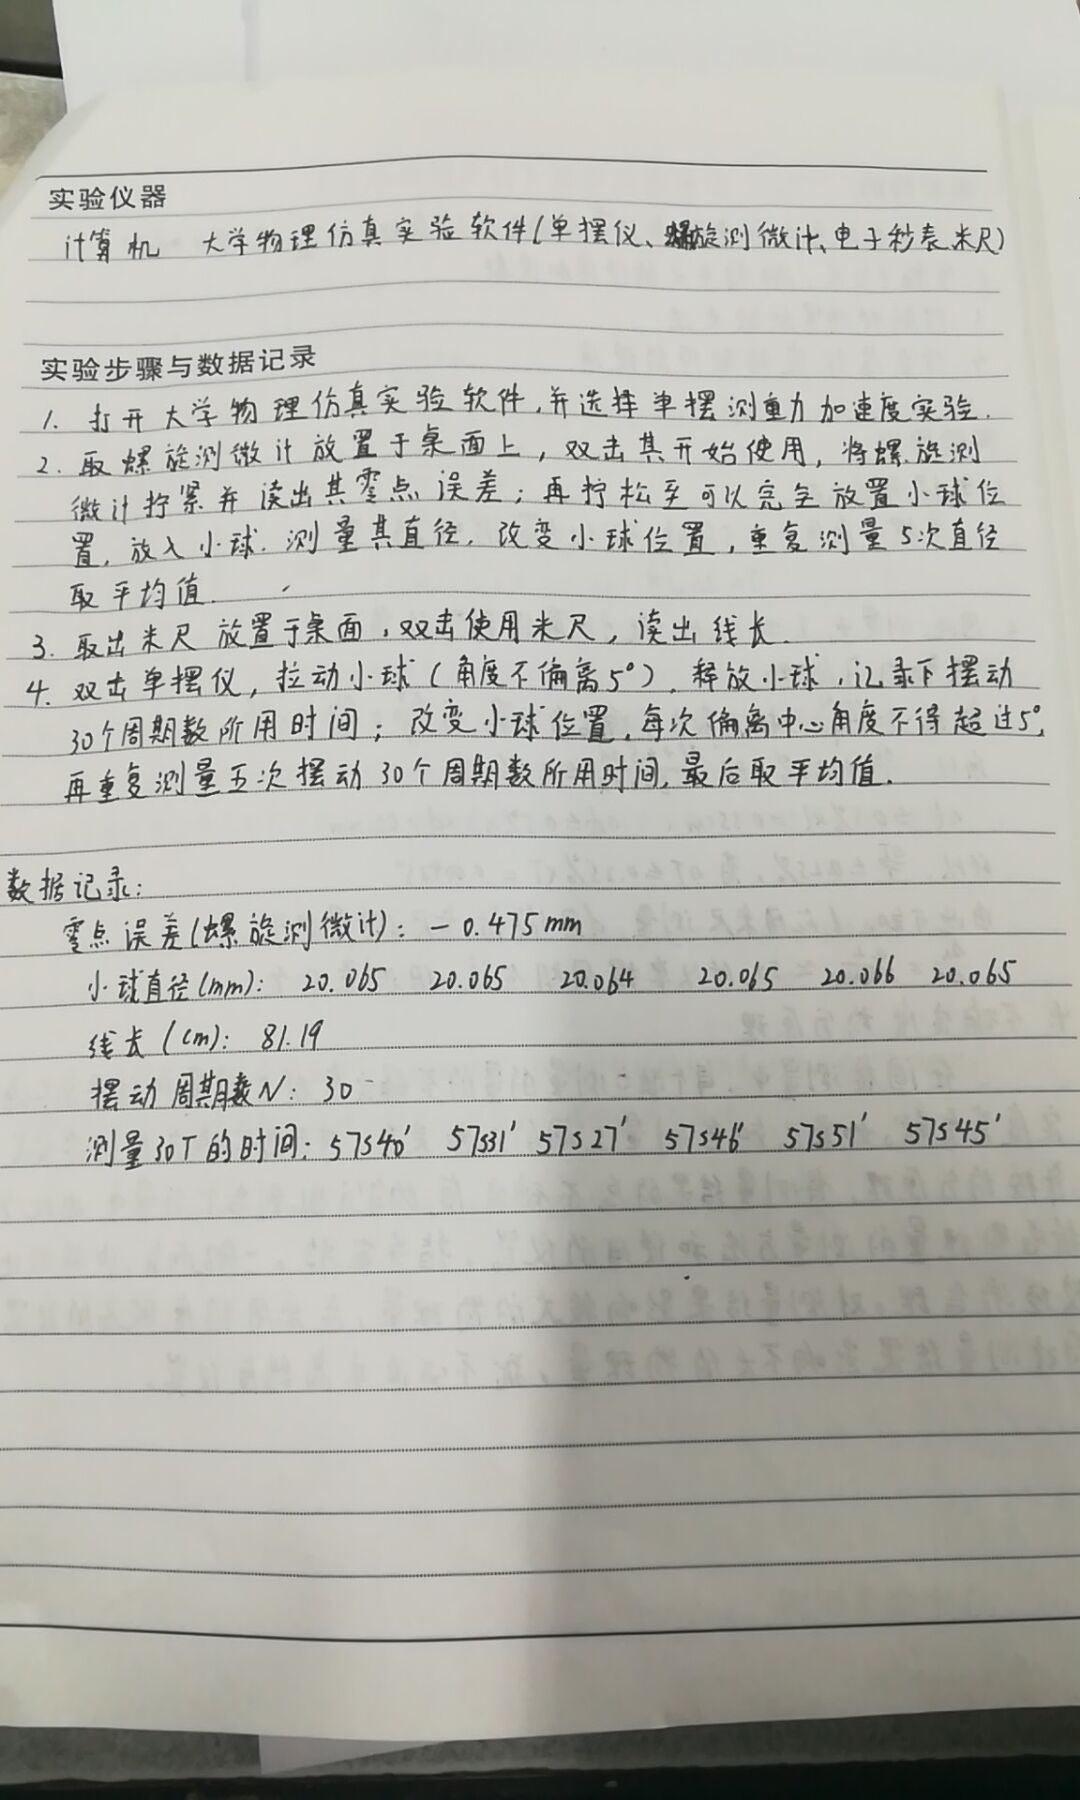 实验仪器
计算机 大学物理仿真实验软件(单摆仪、螺旋测微计、电子秒表、米尺)
实验步骤与数据记录
1. 打开大学物理仿真实验软件,并选择单摆测重力加速度实验.
2. 取螺旋测微计放置于桌面上,双击其开始使用,将螺旋测
微计拧紧并读出其零点误差;再拧松至可以完全放置小球位
置,放入小球.测量其直径.改变小球位置,重复测量5次直径
取平均值.
3. 取出米尺放置于桌面,双击使用米尺,读出线长.
4. 双击单摆仪,拉动小球(角度不偏离5°).释放小球,记录下摆动
30个周期数所用时间;改变小球位置,每次偏离中心角度不得超过5°,
再重复测量五次摆动30个周期数所用时间,最后取平均值.
数据记录:
零点误差(螺旋测微计):-0.475mm
小球直径(mm): 20.065 20.065 20.064 20.065 20.066 20.065
线长(cm): 81.19
摆动周期数N: 30
测量30T的时间: 57s40' 57s31' 57s27' 57s46' 57s51' 57s45'